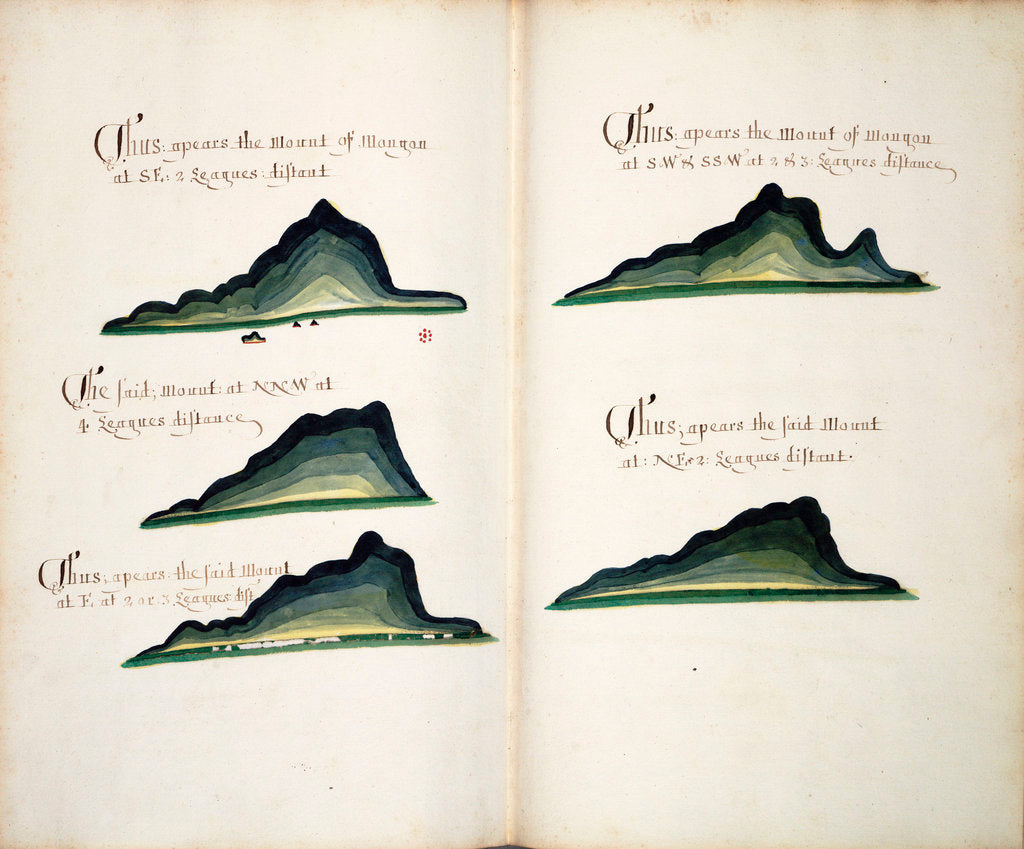 Thus: apears the Mount of Mongon
at SE: 2 Leagues: distant
The said; Mount: at NNW at
4. Leagues distance
Thus; apears: the said Mount
at E. at 2 or. 3 Leagues dist
Thus: apears the Mount of Mongon
at SW & SSW at 2 & 3: Leagues distance
Thus; apears the said Mount
at: NE: 2: Leagues distant.